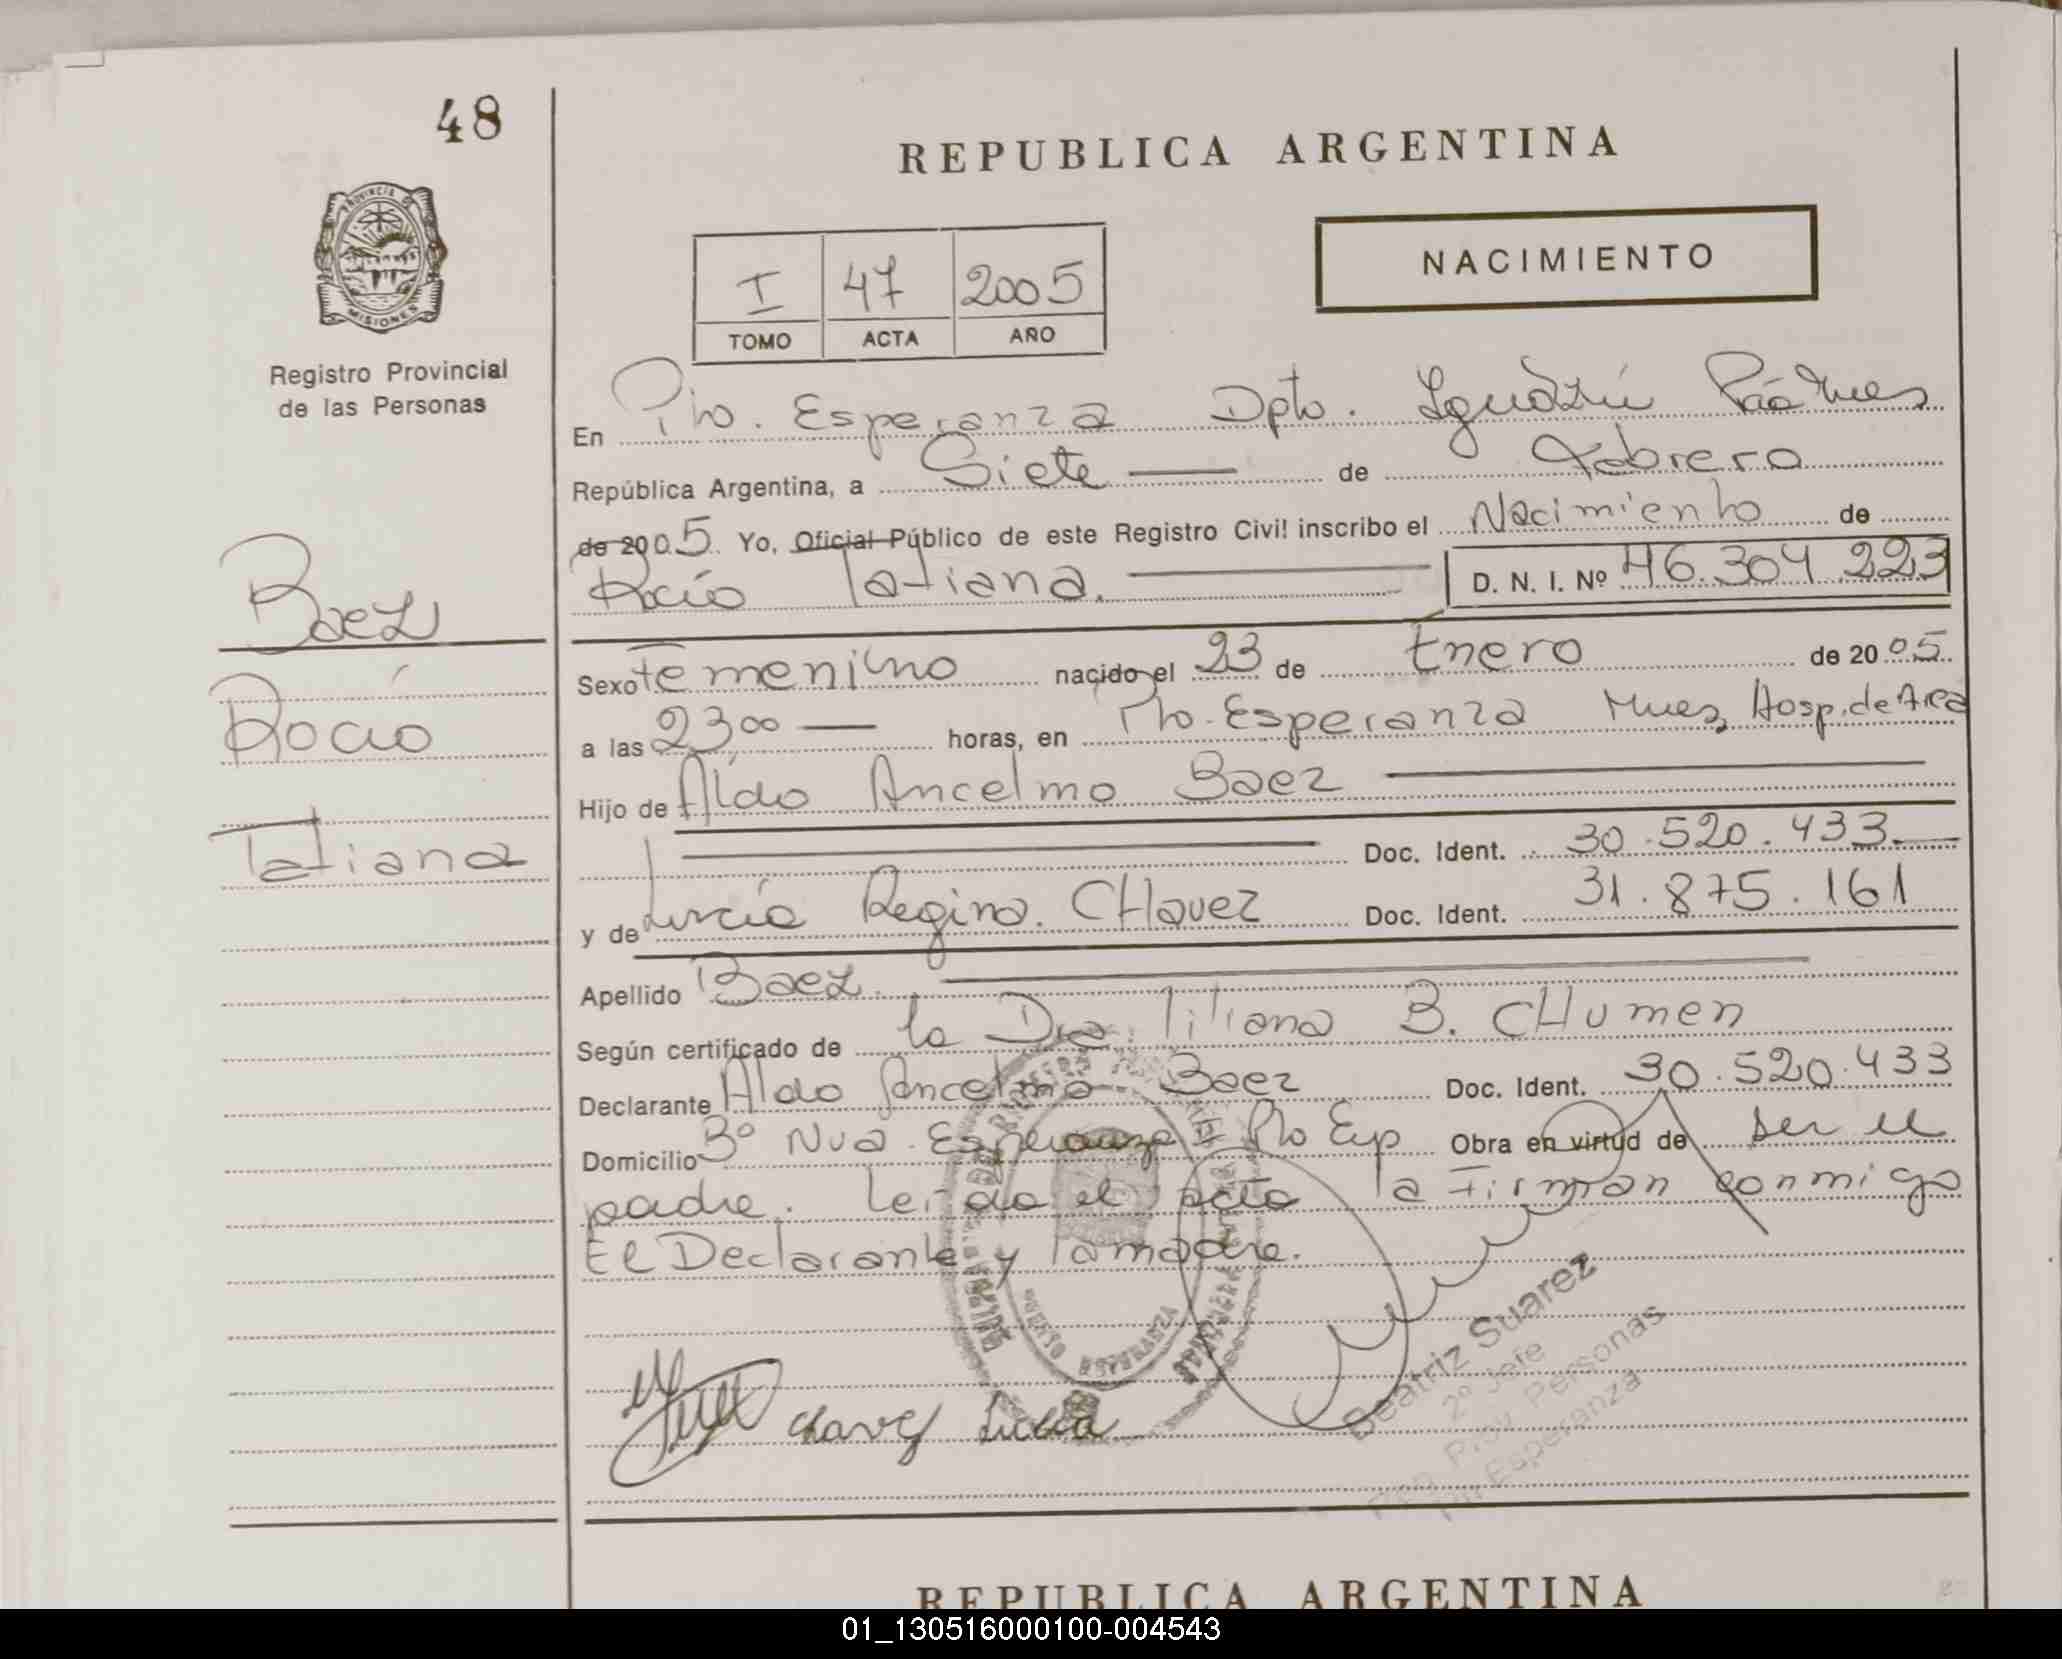 48
REPUBLICA ARGENTINA
PROVINCIA DE
MISIONES
Registro Provincial
de las Personas
NACIMIENTO
I 47 2005
TOMO ACTA AÑO
En Pto. Esperanza Dpto. Iguazú
República Argentina, a Siete de Febrero
de 2005 Yo, Oficial Público de este Registro Civil inscribo el Nacimiento de
Rocío Tatiana. D. N. I. Nº 46.304.223
Baez
Rocío
Tatiana
Sexo Femenino nacido el 23 de Enero de 2005
a las 23 00 horas, en Pto. Esperanza Mnes, Hosp. de Area
Hijo de Aldo Ancelmo Baez
Doc. Ident. 30.520.433.
y de Lucía Regina. CHavez Doc. Ident. 31.875.161
Apellido Baez.
Según certificado de la Dra. liliana B. CHumen
Declarante Aldo Ancelmo Baez Doc. Ident. 30.520.433
Domicilio Bº Nva. Esperanza I Pto Esp Obra en virtud de ser el
padre. Leida el acta la Firman conmigo
El Declarante y la madre.
Chavez Lucia
ESPERANZA
Beatriz Suarez
2º Jefe
Reg. Prov. Personas
Pto. Esperanza
REPUBLICA ARGENTINA
01_130516000100-004543